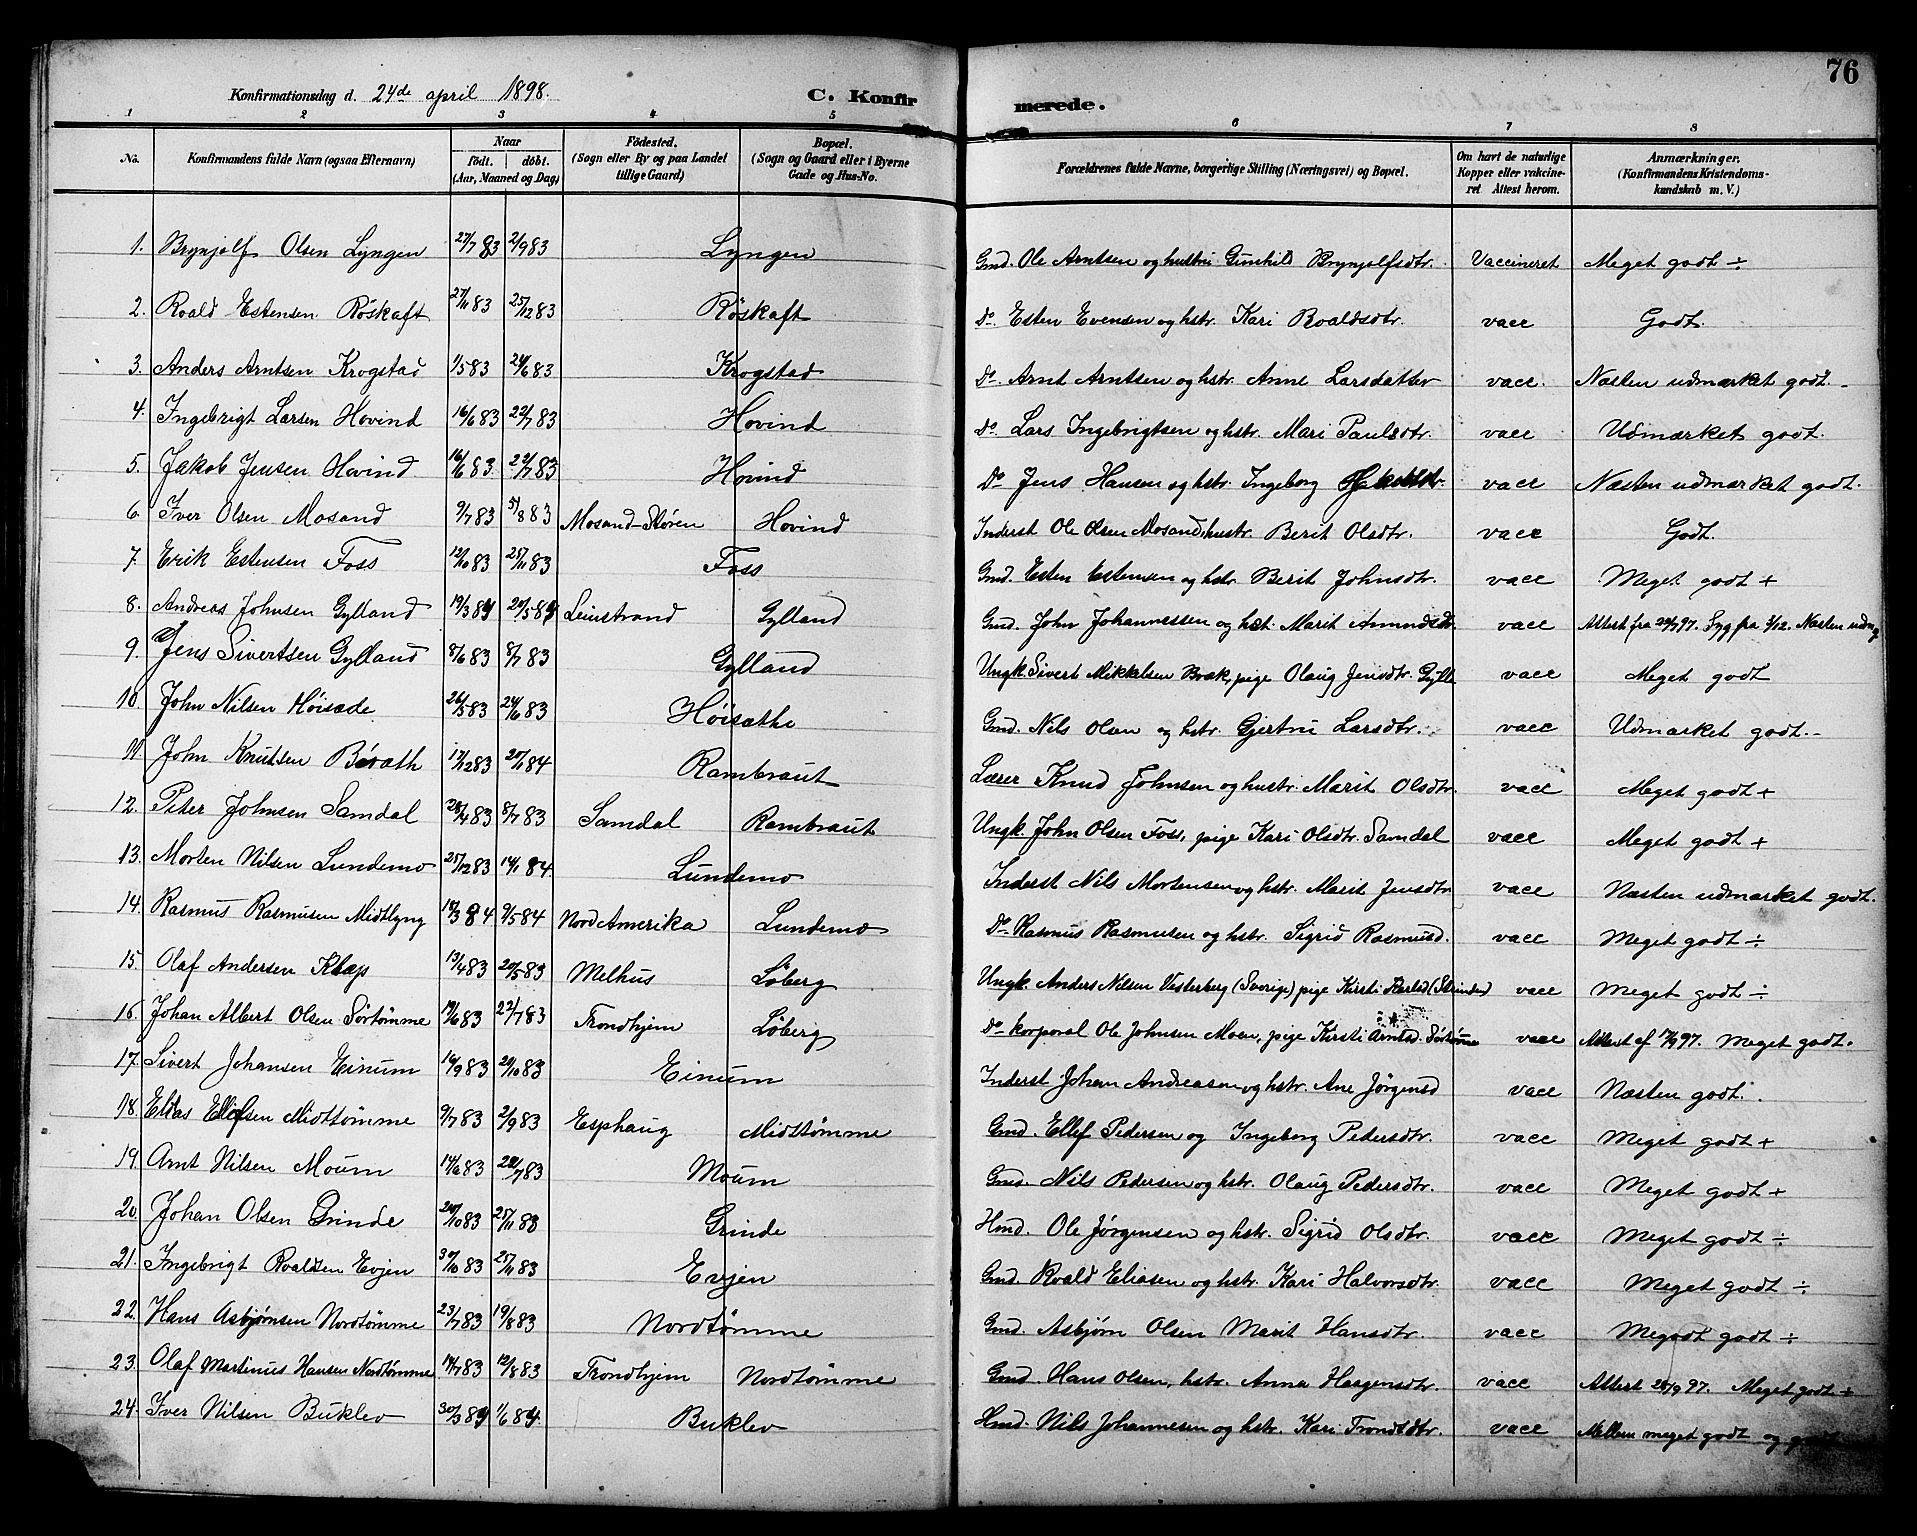 76
Konfirmationsdag d. 24de april 1898.
C. Konfirmerede.
1 2 3 4 5 6 7 8
No. Konfirmandens fulde Navn (ogsaa Efternavn) Naar født. døbt. (Aar, Maaned og Dag) Fødested. (Sogn eller By og paa Landet tillige Gaard) Bopæl. (Sogn og Gaard eller i Byerne Gade og Hus-No. Forældrenes fulde Navne, borgerlige Stilling (Næringsvei) og Bopæl. Om havt de naturlige Kopper eller vakcineret Attest herom. Anmærkninger. (Konfirmandens Kristendomskundskab m. V.)
1. Brynjolf Olsen Lyngen 27/7 83 2/9 83 Lyngen Gmd. Ole Arntsen og hustru Gunhild Brynjolfsdtr. Vaccineret Meget godt ÷
2. Roald Estensen Röskaft 27/11 83 25/12 83 Röskaft Do. Esten Evensen og hstr. Kari Roaldsdtr. vacc Godt.
3. Anders Arntsen Krogstad 1/5 83 24/6 83 Krogstad Do. Arnt Arntsen og hstr. Anne Larsdatter vacc. Næsten udmærket godt. -
4. Ingebrigt Larsen Hovind 16/6 83 22/7 83 Hovind Do. Lars Ingebrigtsen og hstr. Mari Paulsdtr. vacc Udmærket godt.
5. Jakob Jensen Hovind 16/6 83 22/7 83 Hovind Do. Jens Hansen og hstr. Ingeborg vacc Næsten udmærket godt.
6. Iver Olsen Mosand 9/7 83 5/8 83 Mosand-Støren Hovind Inderst Ole Olsen Mosand, hustr. Berit Olsdtr. vacc Godt.
7. Erik Estensen Foss 12/10 83 25/11 83 Foss Gmd. Esten Estensen og hstr Berit Johnsdtr. vacc Meget godt +
8. Andreas Johnsen Gylland 19/3 84 20/5 84 Leinstrand Gylland Gmd. John Johannessen og hst. Marit Amundsdtr. vacc Attest fra 97. Syg fra 3/12. Næsten udm.
9. Jens Sivertsen Gylland 8/6 83 8/7 83 Gylland Ungk. Sivert Mikkelsen Bræk, pige Olaug Jensdtr. Gylle vacc Meget godt
10. John Nilsen Höisæde 26/5 83 24/6 83 Höisæthe Gmd. Nils Olsen og hstr. Gjertru Larsdtr. vacc Udmærket godt. -
11. John Knutsen Böræth 17/12 83 20/1 84 Rambraut Lærer Knud Johnsen og hustr. Marit Olsdtr. vacc Meget godt +
12. Peter Johnsen Samdal 28/4 83 8/7 83 Samdal Rambraut Ungk. John Olsen Foss, pige Kari Olsdtr. Samdal vacc Meget godt +
13. Morten Nilsen Lundemo 25/12 83 14/1 84 Lundemo Inderst Nils Mortensen og hstr. Marit Jensdtr. vacc Næsten udmærket godt.
14. Rasmus Rasmusen Midtlyng 18/3 84 9/5 84 Nord Amerika Lundemo Do. Rasmus Rasmusen og hstr. Sigrid Rasmusd. vacc Meget godt ÷
15. Olaf Andersen Klæp 13/4 83 20/5 83 Melhus Löberg Ungk. Anders Nilsen Vesterberg (Sverige) pige Kirsti (Strinden) vacc Meget godt ÷
16. Johan Albert Olsen Sörtömme 19/6 83 22/7 83 Trondhjem Löberg Do. korporal Ole Johnsen Moen, pige Kirsti Arntsd. Sörtömme vacc Attest af 17/9 97. Meget godt.
17. Sivert Johansen Einum 14/9 83 21/10 83 Einum Inderst Johan Andreasen og hstr. Ane Jörgensd vacc Næsten godt.
18. Elias Ellefsen Midttömme 9/7 83 2/9 83 Esphaug Midttömme Gmd. Ellef Pedersen og Ingeborg Pedersdtr. vacc Meget godt +
19. Arnt Nilsen Moum 14/6 83 22/7 83 Moum Gmd. Nils Pedersen og hstr. Olaug Pedersdtr. vacc Meget godt +
20. Johan Olsen Grinde 24/10 83 25/11 83 Grinde Hmd. Ole Jörgensen og hstr. Sigrid Olsdtr. vacc Meget godt ÷
21. Ingebrigt Roaldsen Evjen 30/10 83 25/11 83 Evjen Gmd. Roald Eliasen og hstr. Kari Halvorsdtr. vacc Meget godt ÷
22. Hans Asbjørnsen Nordtömme 23/7 83 19/8 83 Nordtömme Gmd. Asbjørn Olsen Marit Hansdtr. vacc Megodt godt ÷
23. Olaf Martinus Hansen Nordtömme 14/7 83 12/8 83 Trondhjem Nordtömme Gmd. Hans Olsen, hstr. Anna Haagensdtr. vacc Attest 28/9 97. Meget godt +
24. Iver Nilsen Buklev 30/3 84 1/6 84. Buklev Hmd. Nils Johannesen og hstr. Kari Trondsdtr. vacc Mellem meget godt og godt